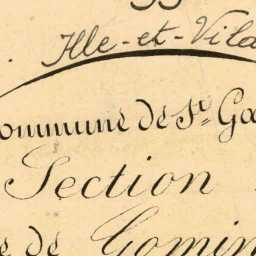 Ille-et-Vila
ommune de St. Ga
Section
e de Gomin